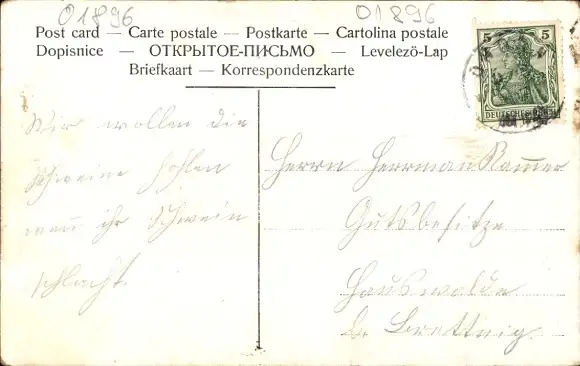 01896 01896
Post card — Carte postale — Postkarte — Cartolina postale
Dopisnice — ОТКРЫТОЕ-ПИСЬМО — Levelező-Lap
Briefkaart — Korrespondenzkarte
5 5
DEUTSCHES REICH
Wir wollen die
Schweine hohlen
wenn ihr Schwein
schlacht.
Herrn Herrman
Gutsbesitze
Hauswalde
b. Brettnig.